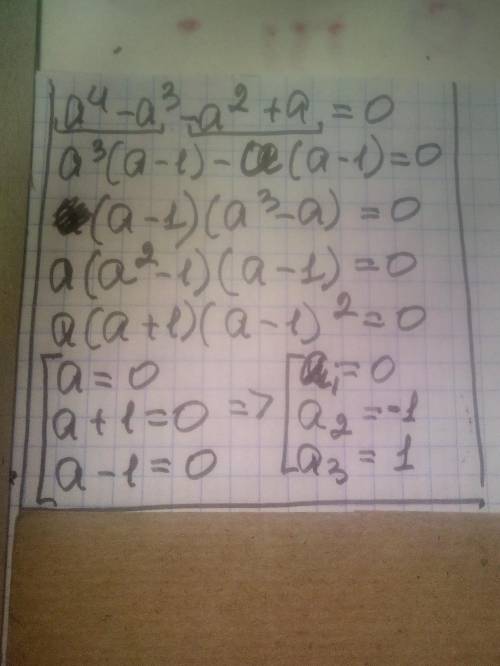 a⁴ - a³ - a² + a = 0
a³(a - 1) - a(a - 1) = 0
(a - 1)(a³ - a) = 0
a(a² - 1)(a - 1) = 0
a(a + 1)(a - 1)² = 0
[a = 0 [a₁ = 0
a + 1 = 0 => a₂ = -1
a - 1 = 0 a₃ = 1